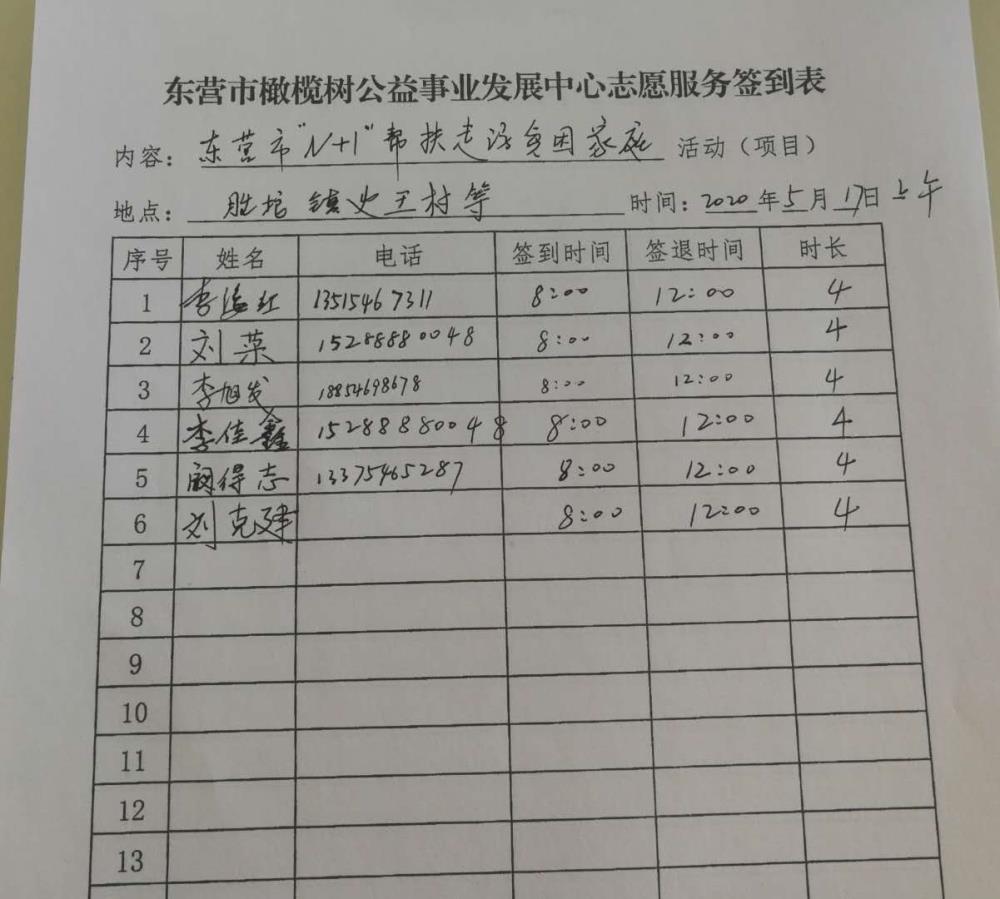 东营市橄榄树公益事业发展中心志愿服务签到表
内容: 东营市"N+1"帮扶走访贫困家庭 活动(项目)
地点: 胜坨镇史王村等 时间: 2020年5月17日上午
序号 姓名 电话 签到时间 签退时间 时长
1 李 红 13515467311 8:00 12:00 4
2 刘荣 15288880048 8:00 12:00 4
3 李旭发 18854698678 8:00 12:00 4
4 李佳鑫 15288880048 8:00 12:00 4
5 得志 13375465287 8:00 12:00 4
6 刘克建 8:00 12:00 4
7
8
9
10
11
12
13